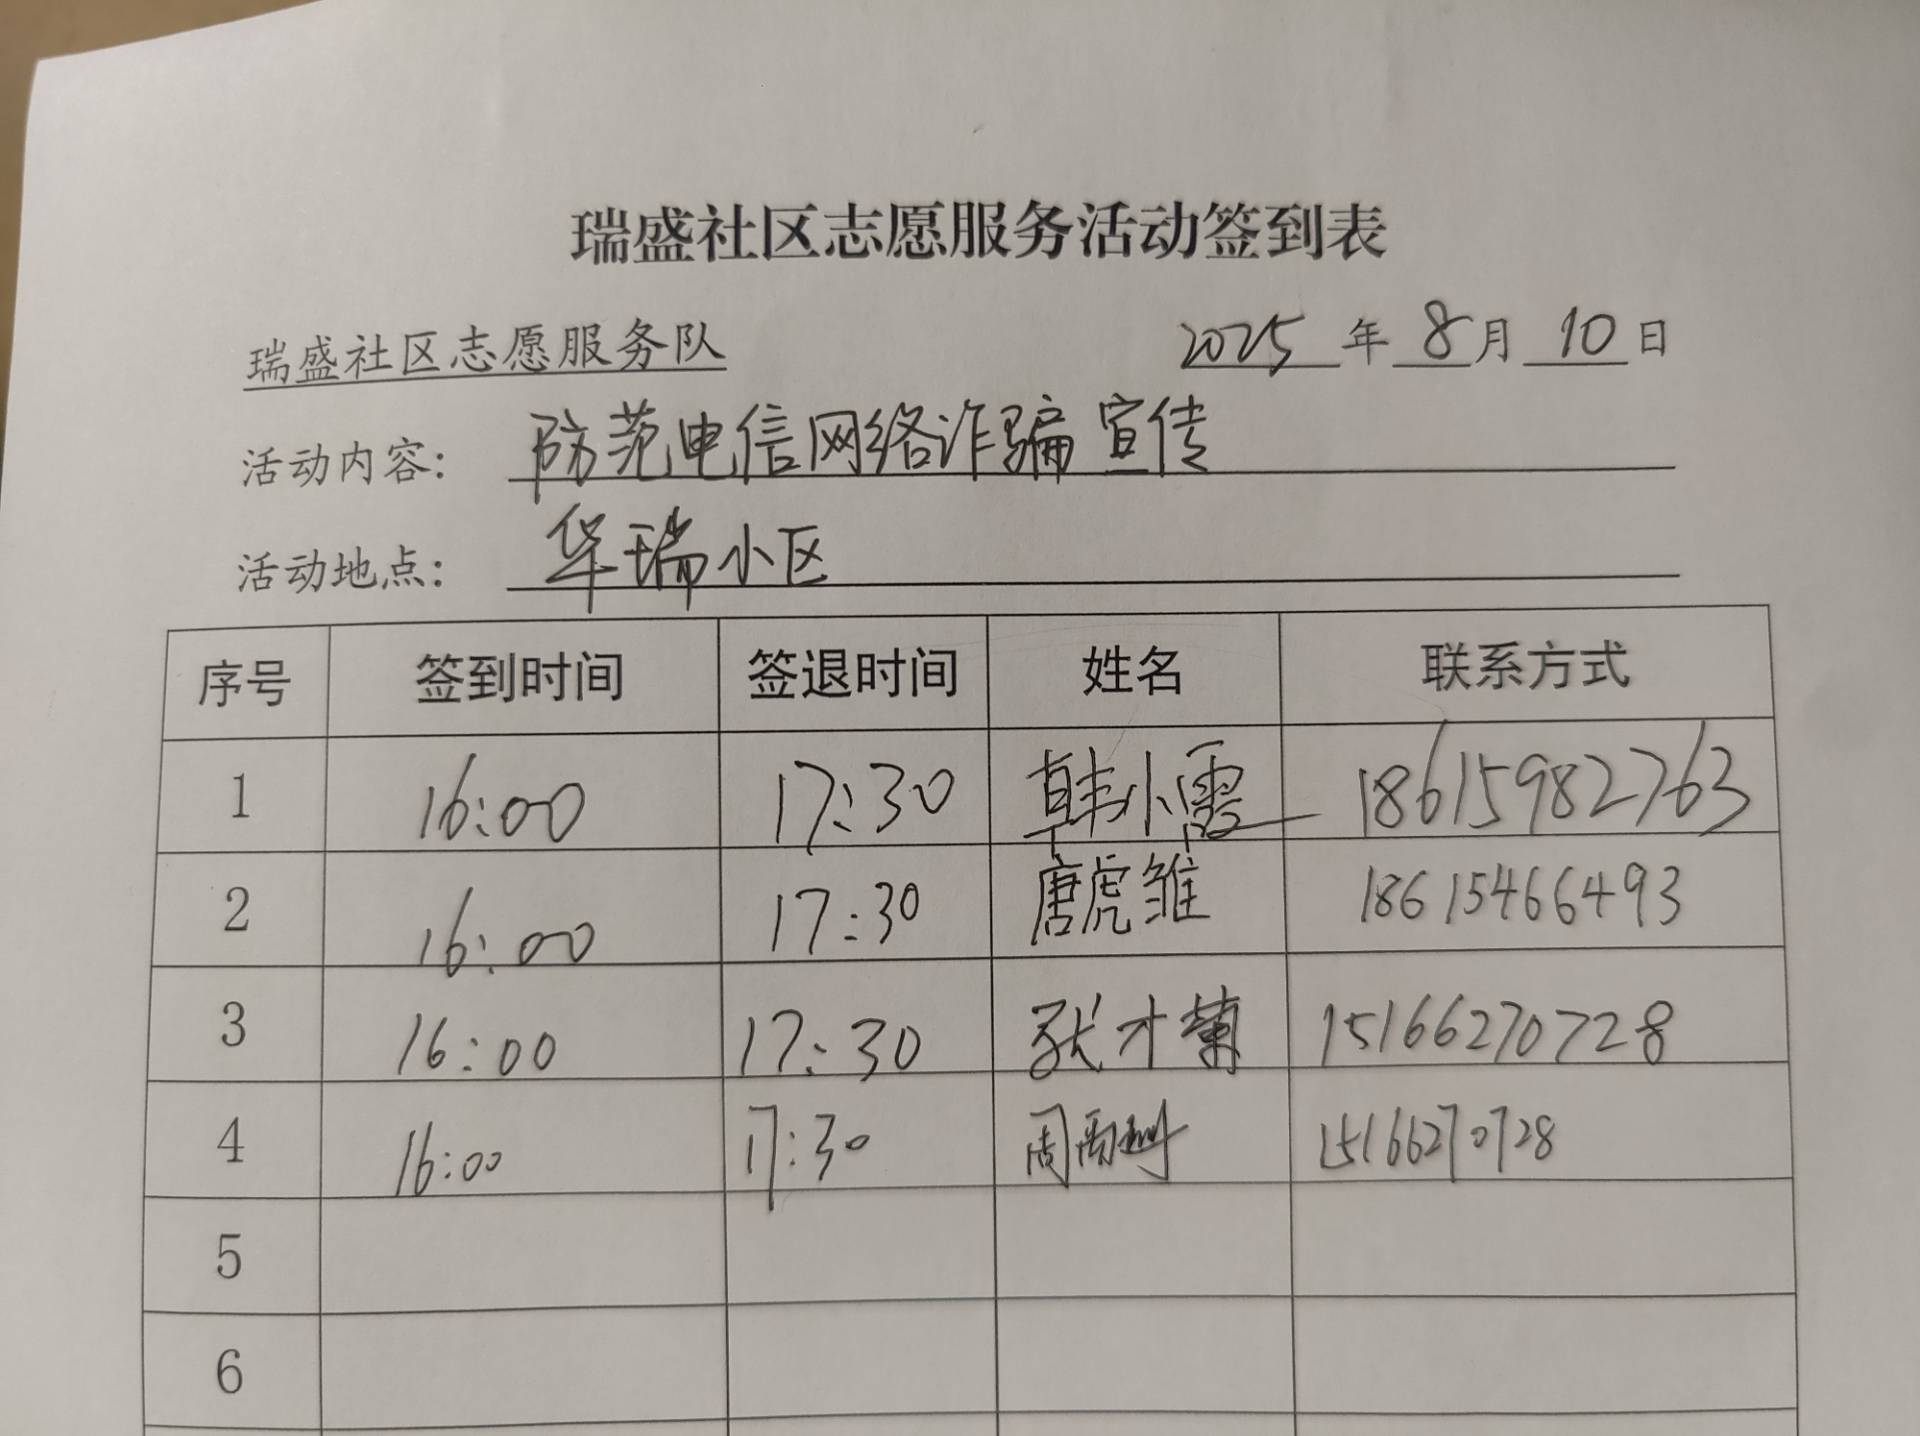 瑞盛社区志愿服务活动签到表
瑞盛社区志愿服务队 2025 年 8 月 10 日
活动内容： 防范电信网络诈骗宣传
活动地点： 华瑞小区
序号 签到时间 签退时间 姓名 联系方式
1 16:00 17:30 韩小霞 18615982763
2 16:00 17:30 唐虎雏 18615466493
3 16:00 17:30 张才菊 15166270728
4 16:00 17:30 周 15166270728
5
6